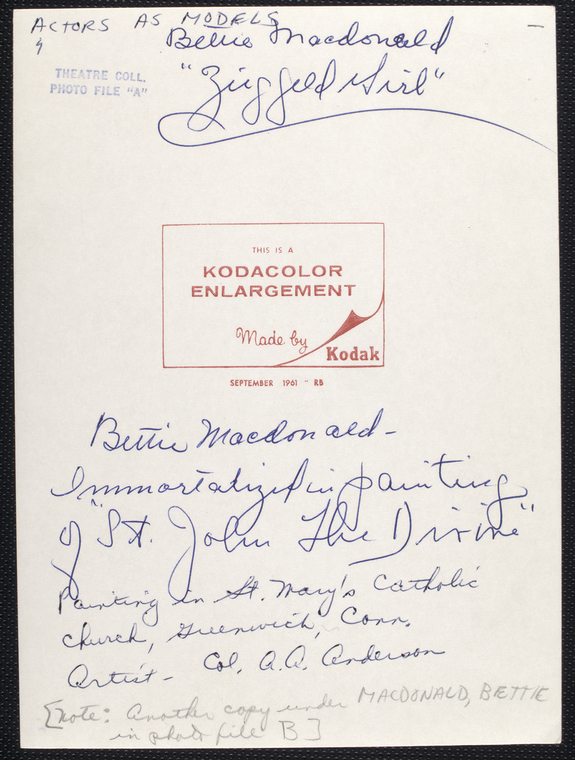 ACTORS AS MODELS
Bettie Macdonald
THEATRE COLL.
PHOTO FILE "A"
"Zigfeld Girl"
THIS IS A
KODACOLOR
ENLARGEMENT
Made by
Kodak
SEPTEMBER 1961 - RB
Bettie Macdonald -
Immortalized in painting
of "St. John The Divine"
Painting in St. Mary's Catholic
Church, Greenwich, Conn.
Artist - Col. A.A. Anderson
[Note: Another copy under MACDONALD, BETTIE
in photo file B]